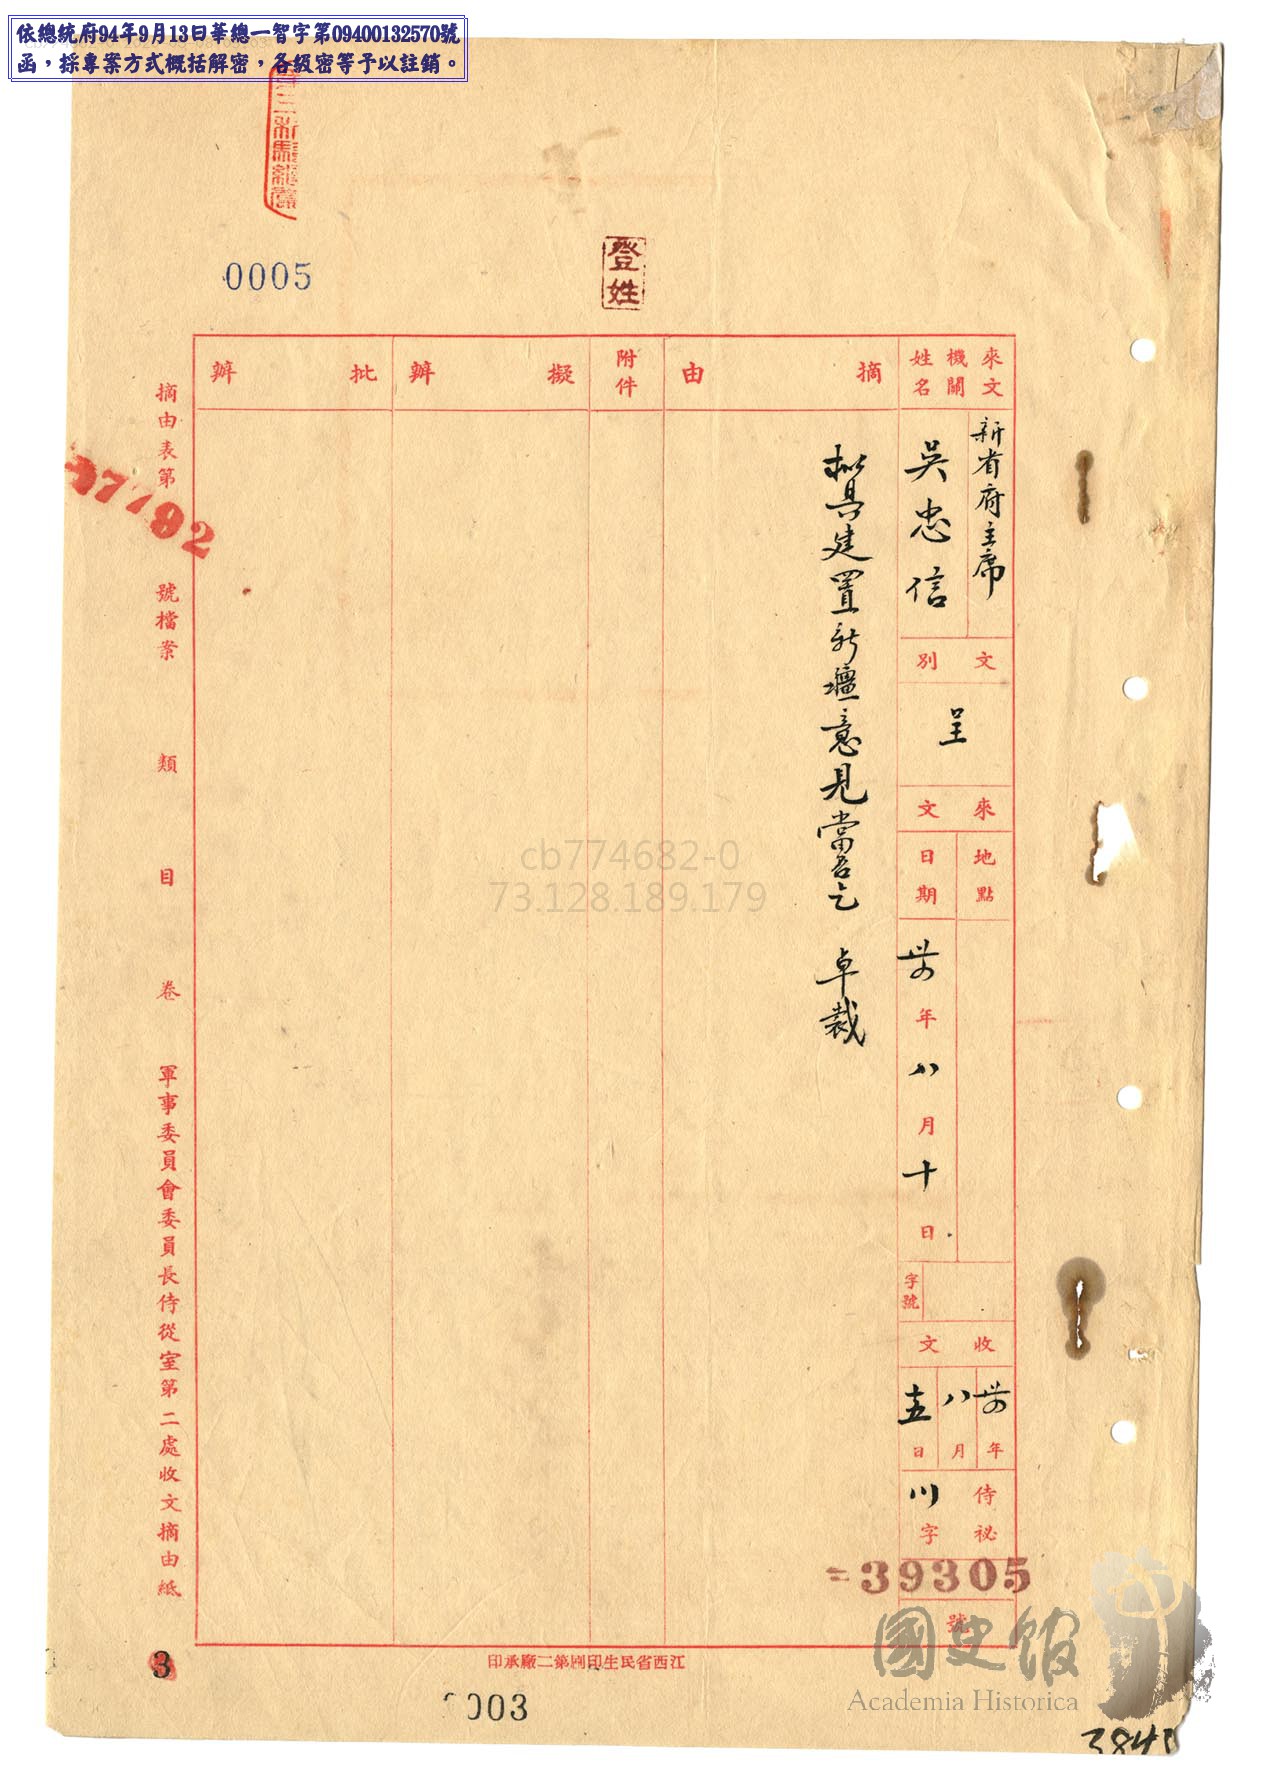 依總統府94年9月13日華總一智字第09400132570號
函，採專案方式概括解密，各級密等予以註銷。
0005
登姓
來文機關姓名
新省府主席
吳忠信
文別
呈
來文
地點
日期
卅四年八月十日
字號
收文
卅四年八月十五日
侍祕川字
39305
號
摘由
擬具建置新疆意見當否乞 卓裁
附件
擬辦
批辦
摘由表第
7792
號檔案 類 目 卷 軍事委員會委員長侍從室第二處收文摘由紙
3
江西省民生印刷第二廠承印
003
cb774682-0
73.128.189.179
國史館
Academia Historica